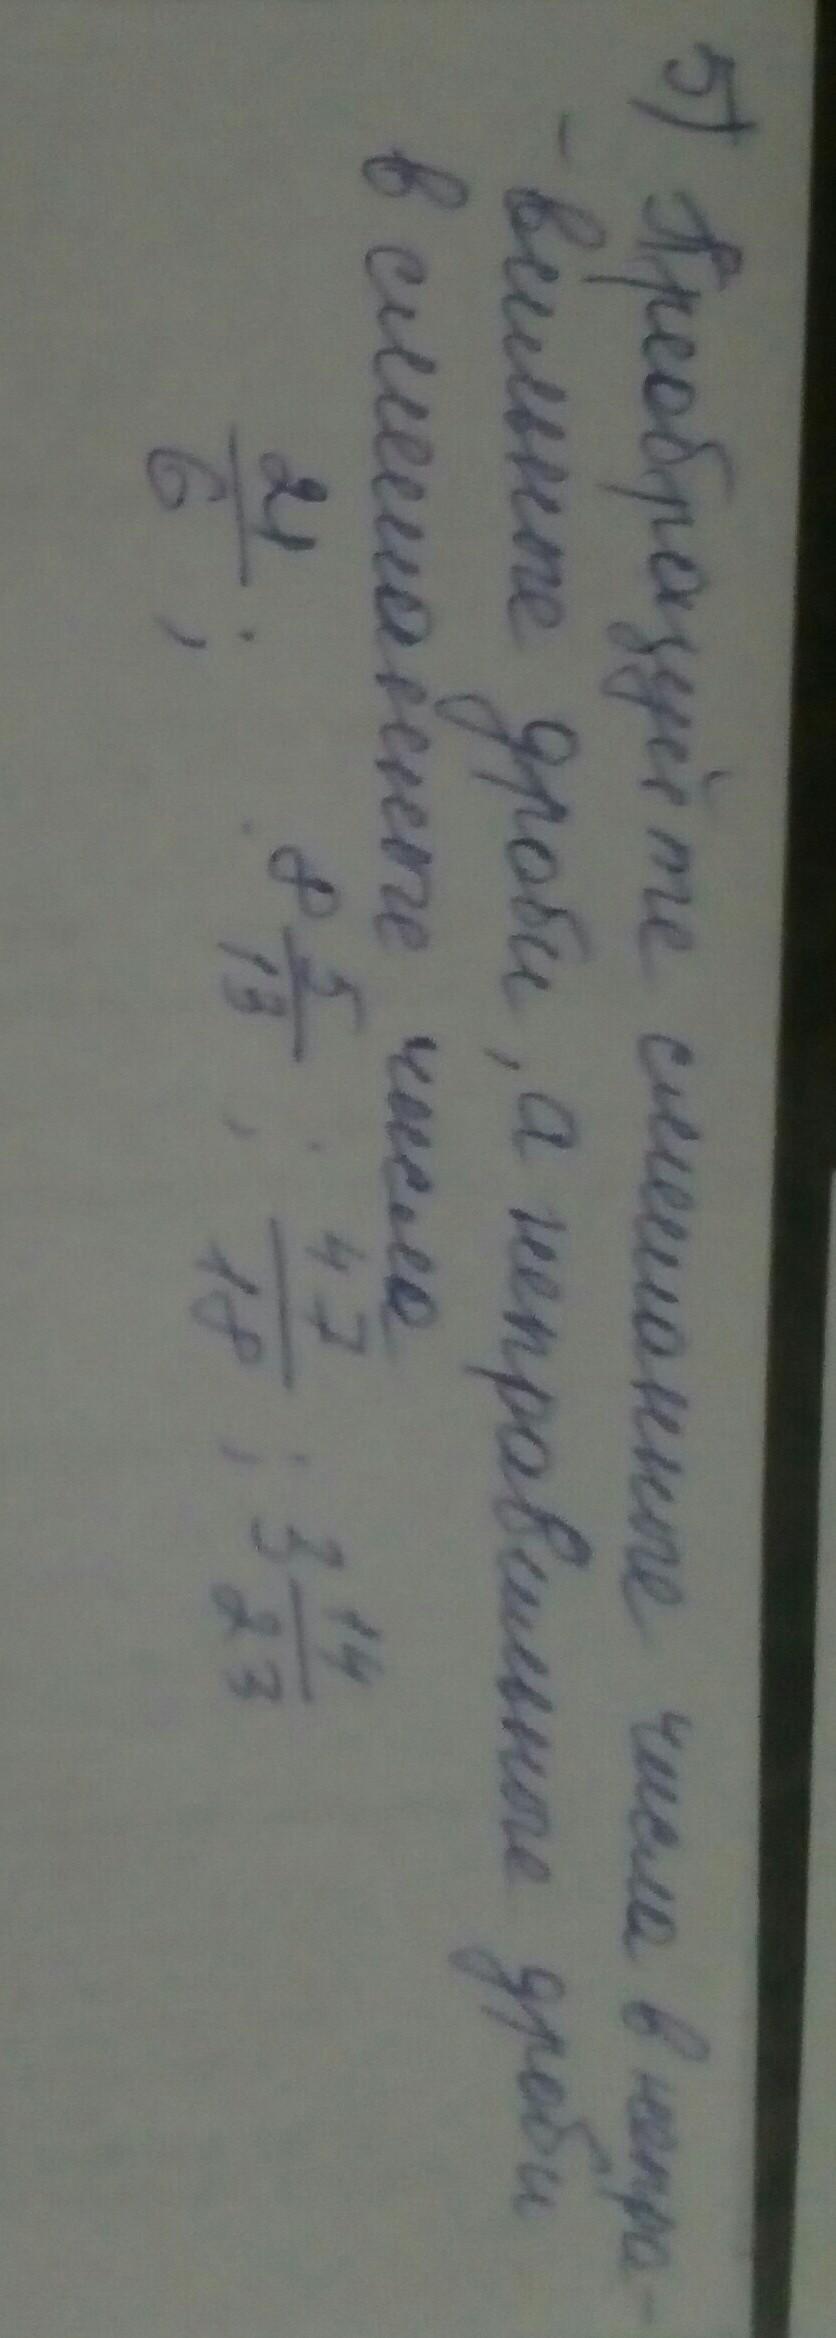 5) Преобразуйте смешанные числа в непра-
-вильные дроби, а неправильные дроби
в смешанные числа
21/6 ; 8 5/13 ; 47/18 ; 3 14/23